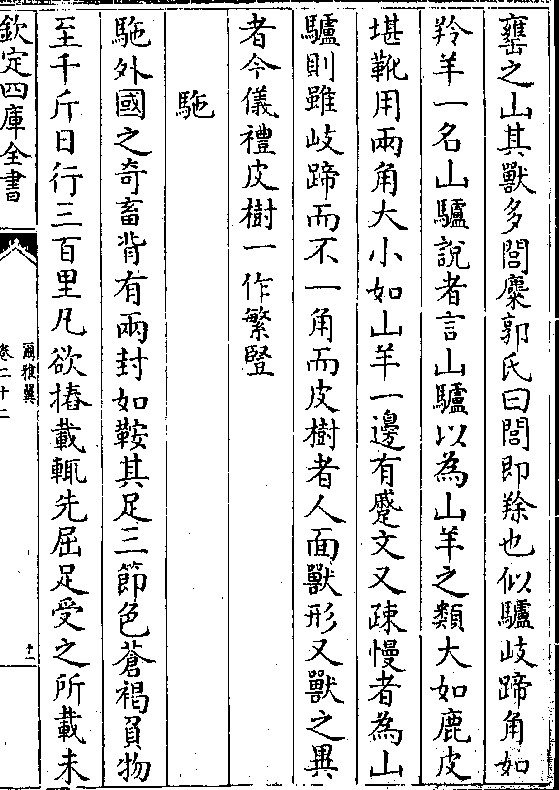 罋之山其獸多閭麋郭氏曰閭即羭也似驢岐蹄角如
羚羊一名山驢說者言山驢以為山羊之類大如鹿皮
堪靴用兩角大小如山羊一邊有蹙文又踈慢者為山
驢則雖岐蹄而不一角而皮樹者人面獸形又獸之異
者今儀禮皮樹一作繁竪
駞
駞外國之奇畜背有兩封如鞍其足三節色蒼褐負物
至千斤日行三百里凡欲摏載輒先屈足受之所載未
欽定四庫全書
爾雅翼
卷二十二
十一